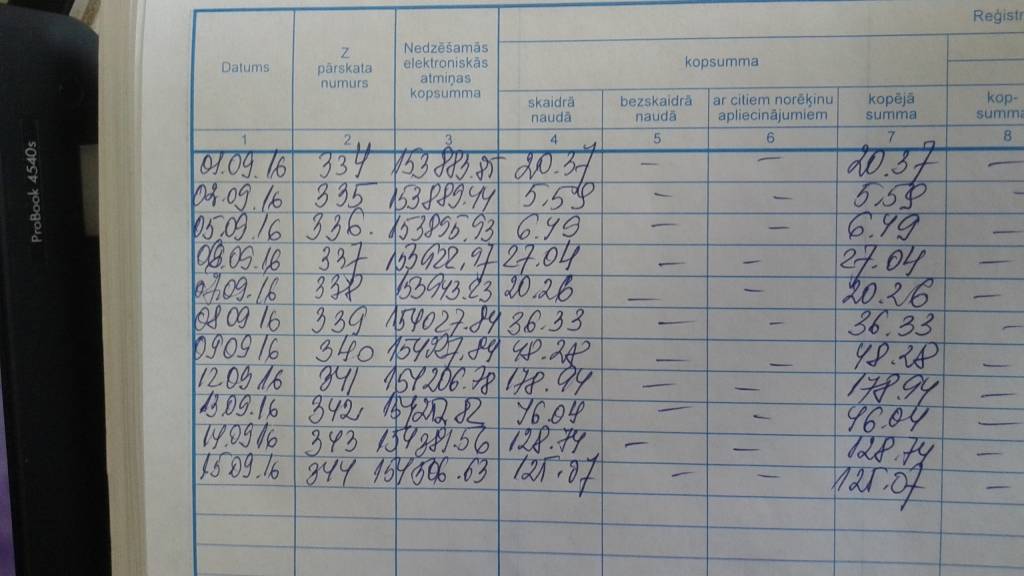 ProBook 4540s
Reģistr
Datums
Z pārskata numurs
Nedzēšamās elektroniskās atmiņas kopsumma
kopsumma
skaidrā naudā
bezskaidrā naudā
ar citiem norēķinu apliecinājumiem
kopējā summa
kop- summa
1 2 3 4 5 6 7 8
01.09.16 334 153883.85 20.37 — — 20.37 —
02.09.16 335 153889.44 5.59 — — 5.59 -
05.09.16 336. 153895.93 6.49 — — 6.49 —
337 153922.97 27.04 — — 27.04 —
07.09.16 338 153943.23 20.26 — — 20.26 —
08 09 16 339 154027.84 36.33 — — 36.33 —
09 09 16 340 48.28 — — 48.28 —
12.09.16 341 154206.78 178.94 — — 178.94 —
13.09.16 342 154252.82 46.04 — — 46.04 —
14.09.16 343 154381.56 128.74 — — 128.74 —
15.09.16 344 154506.63 125.07 — — 125.07 —